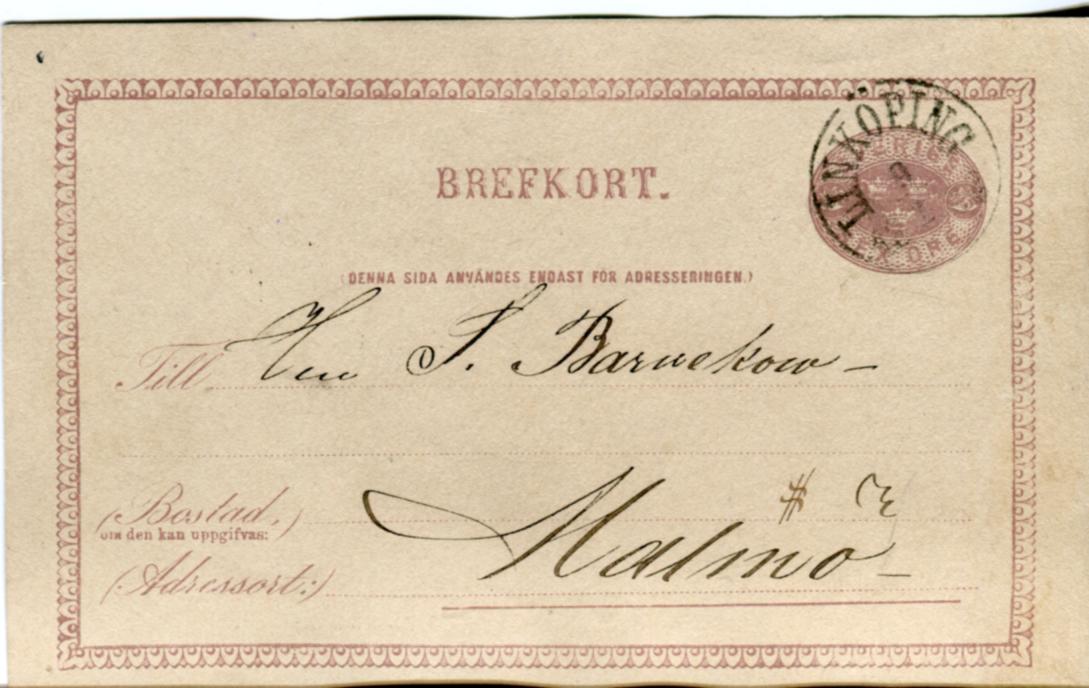 LINKÖPING
BREFKORT.
(DENNA SIDA ANVÄNDES ENDAST FÖR ADRESSERINGEN.)
Till Herr S. Barnekow –
(Bostad,)
om den kan uppgifvas:
(Adressort:) Malmö –